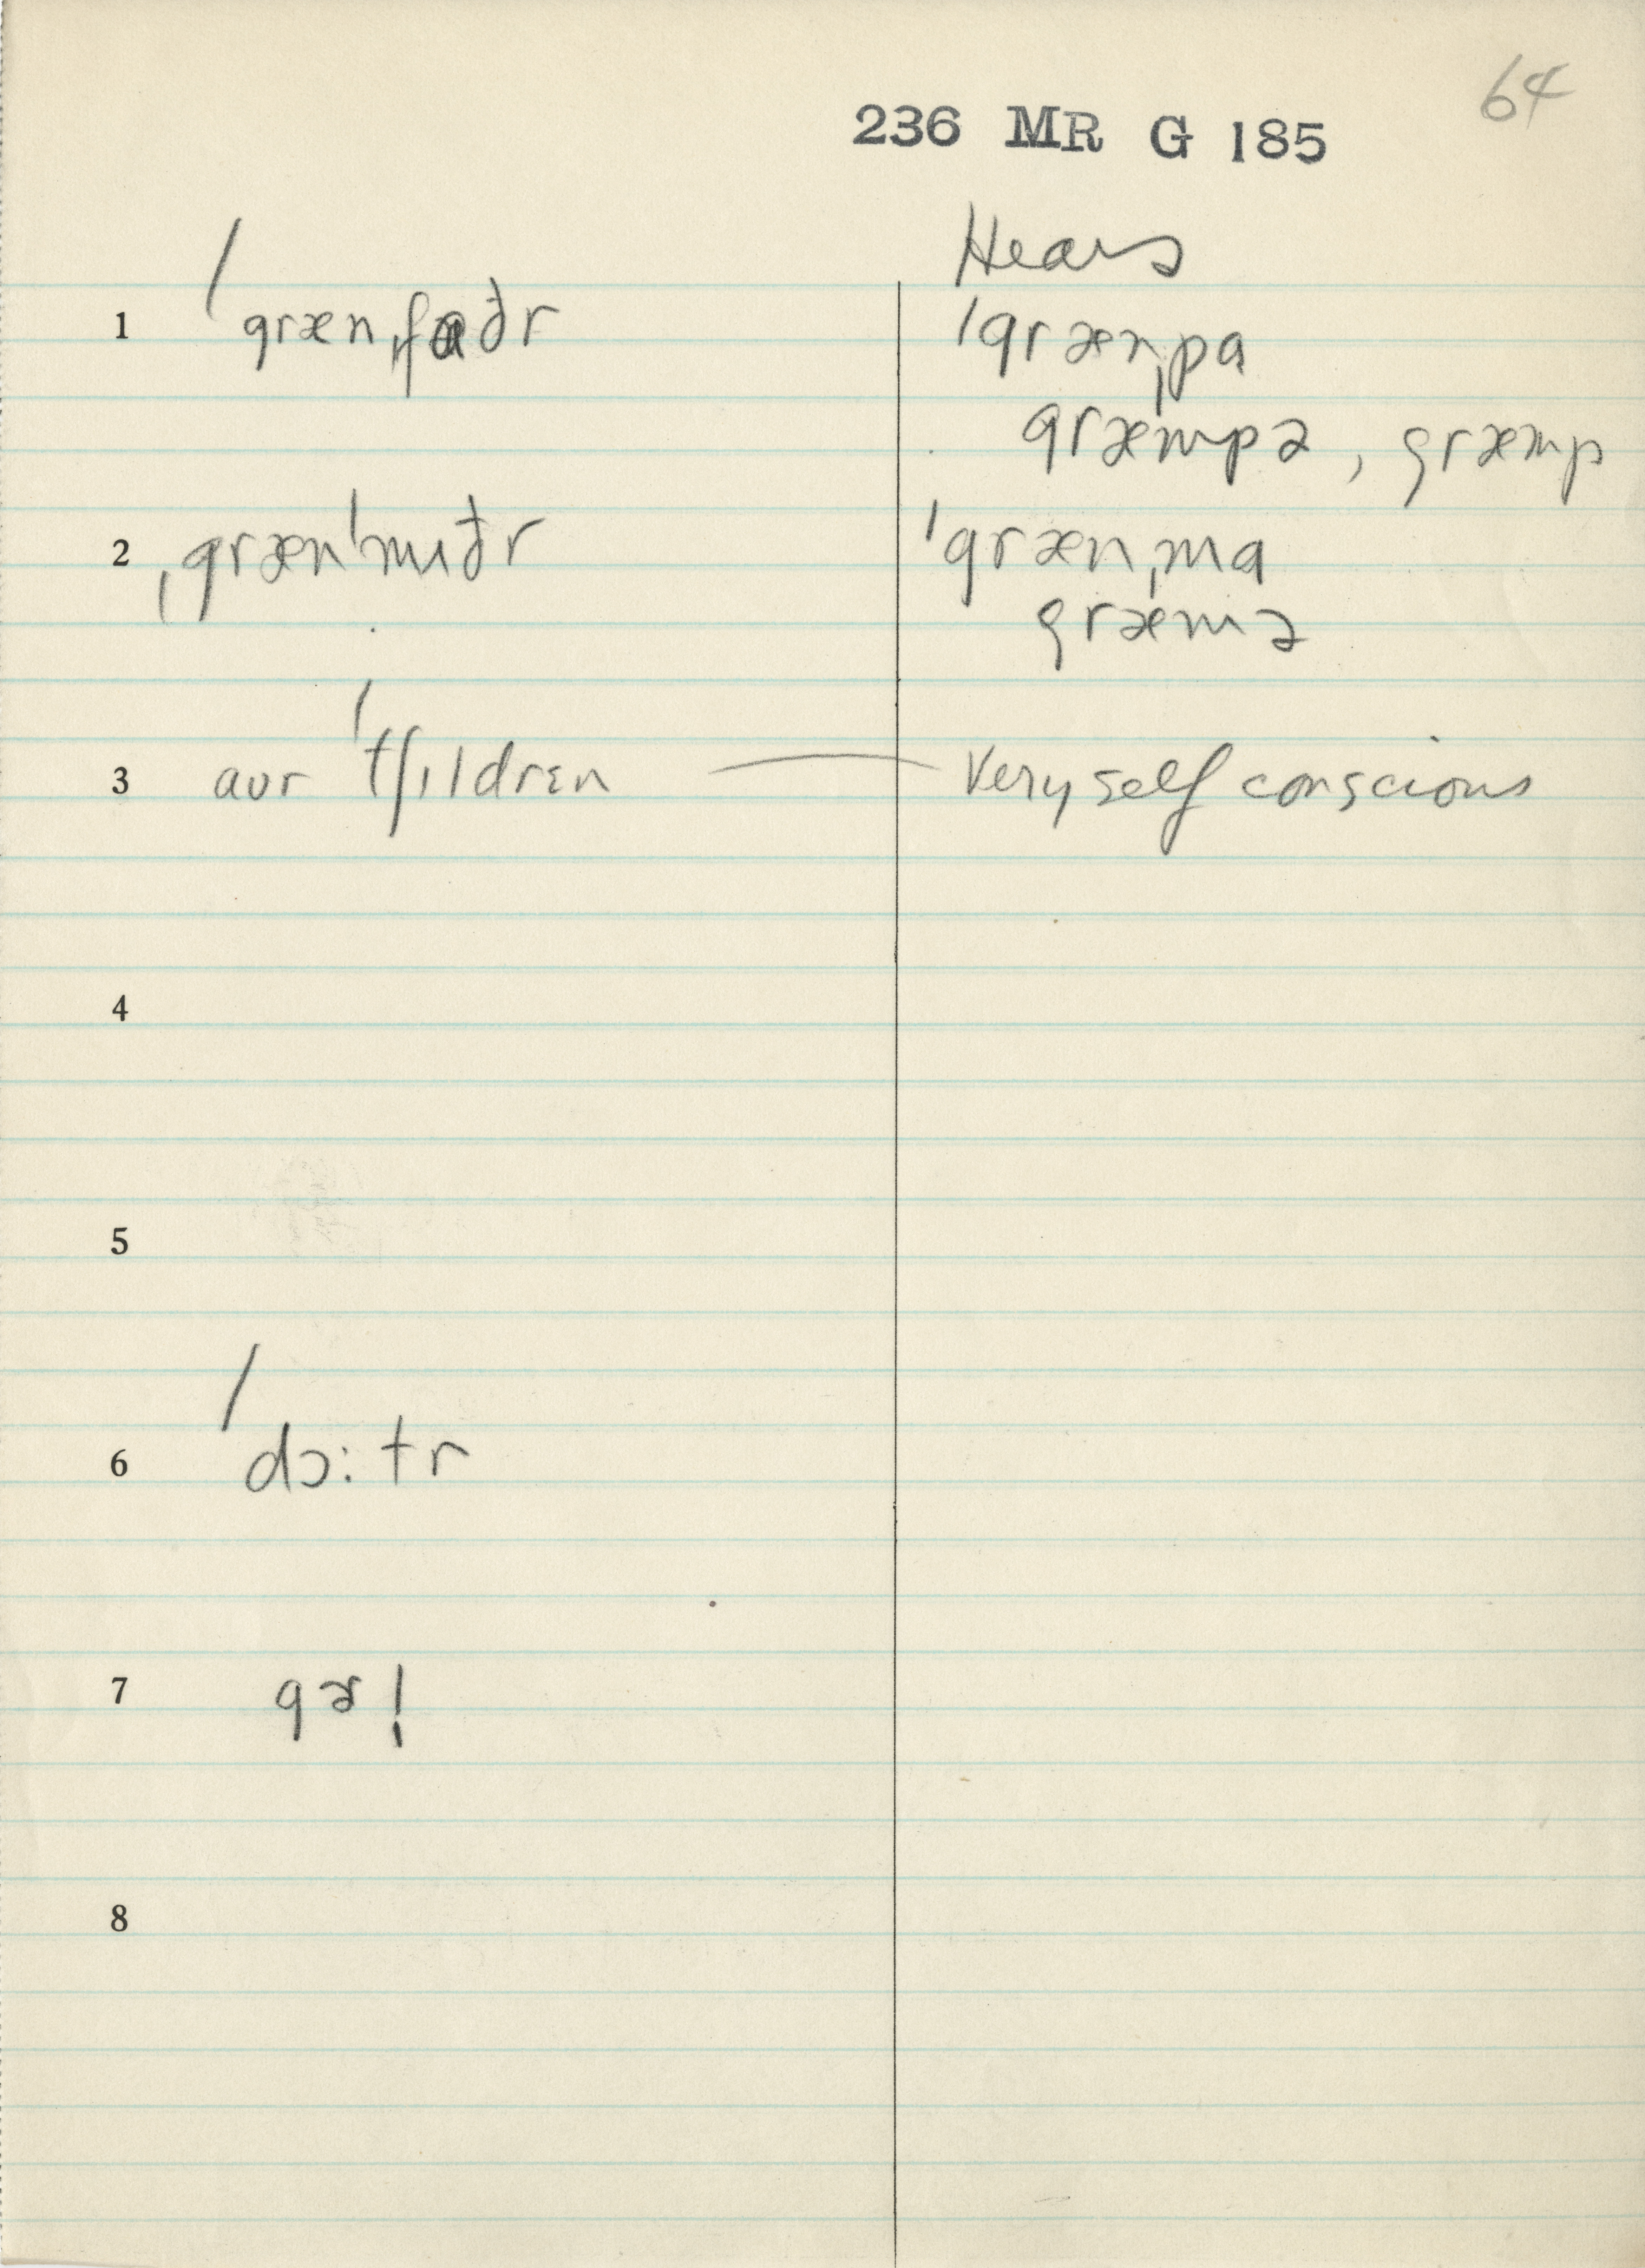 64
236 MR G 185
Hears
1 ˈgrænˌfɑðr
ˈgrænˌpɑ
græmpə, græmp
2 ˌgrænˈmʌðr
ˈgrænˌmɑ
græmə
3 aʊr ˈtʃɪldrɛn — Very self conscious
4
5
6 ˈdɔ:tr
7 gɚl
8